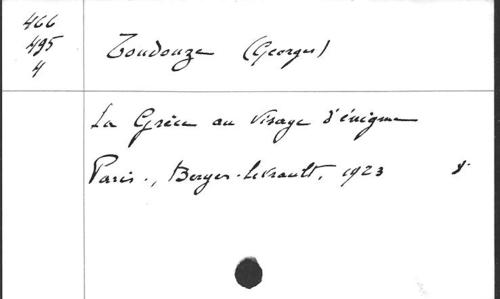 466
495
4
Toudouze (Georges)
La Grèce au visage d'énigme
Paris., Berger-Levrault, 1923 8°